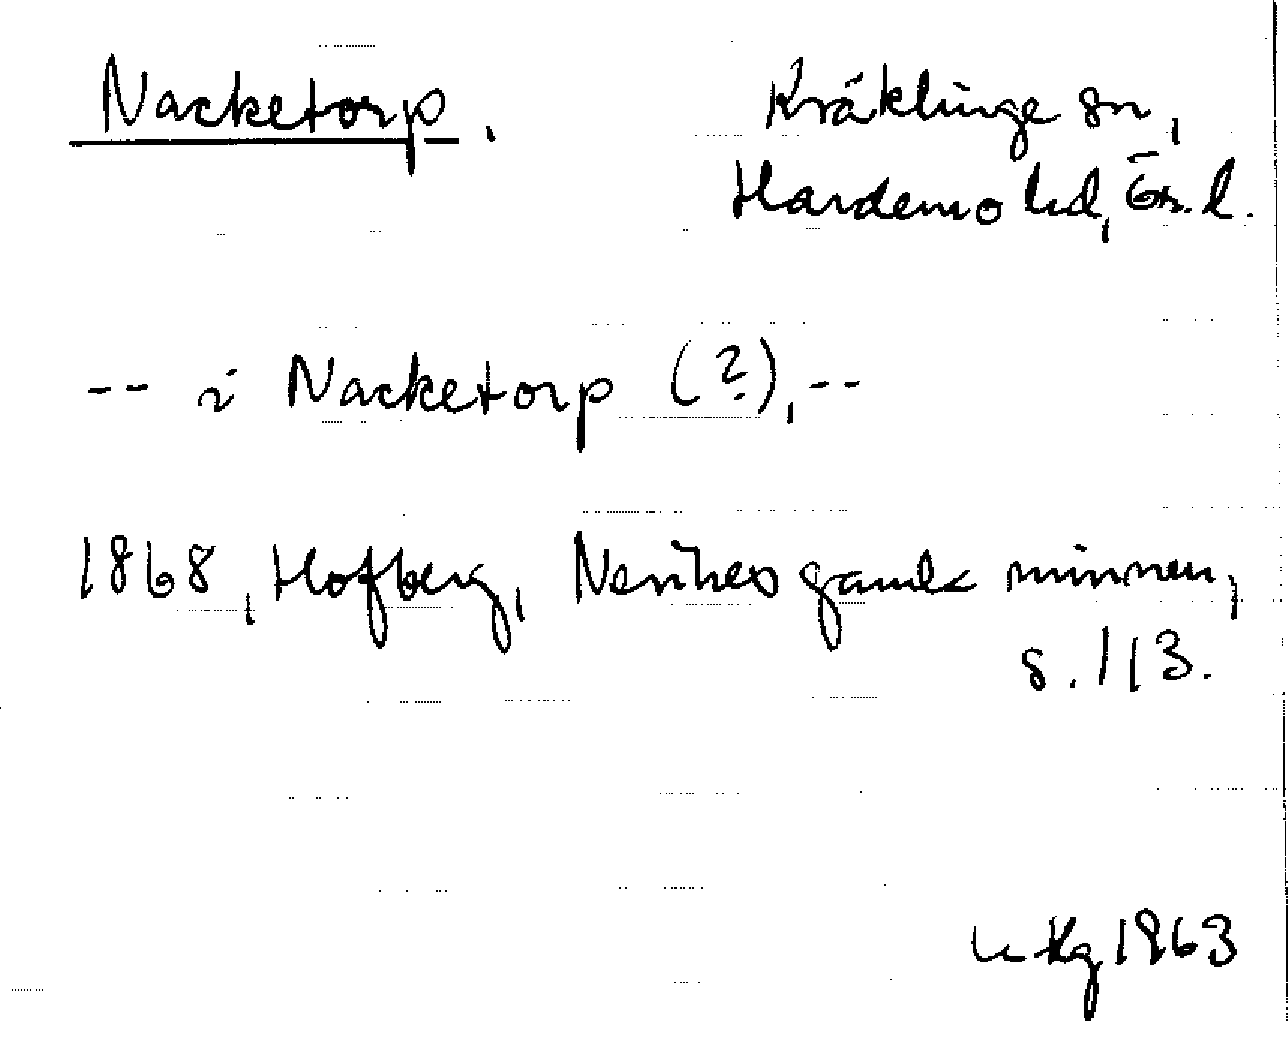 Nacketorp. Kräklinge sn,
Hardemo hd, Ör. l.
-- i Nacketorp (?), --
1868, Hofberg, Nerikes gamla minnen,
s. 113.
1963